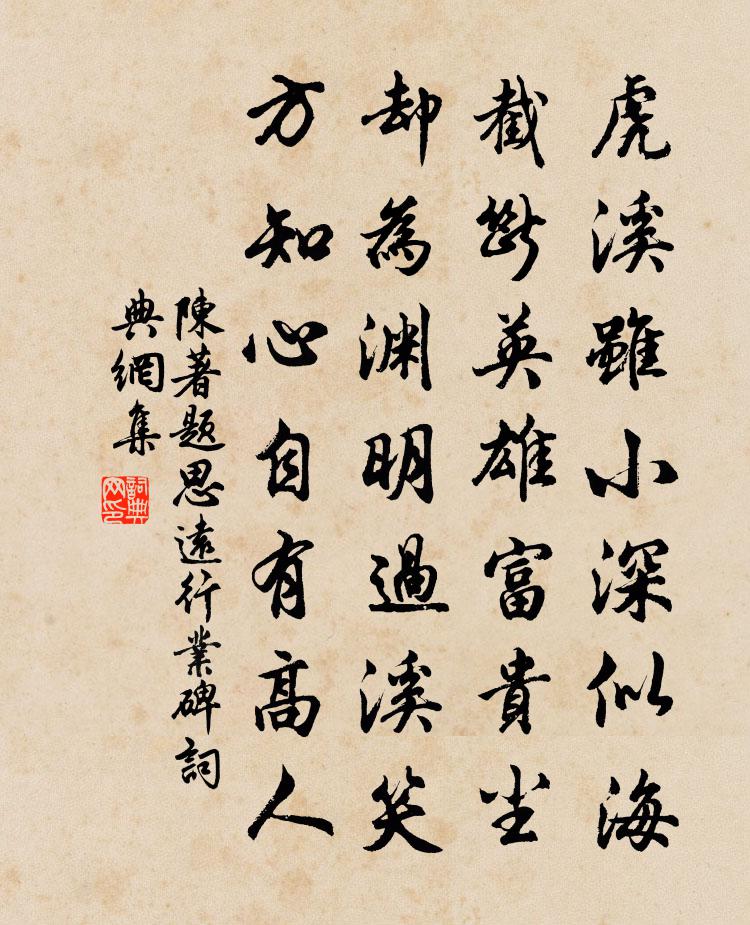 虎溪雖小深似海
截斷英雄富貴尘
却為渊明過溪笑
方知心自有高人
陳著題思遠行業碑詞
典網集
詞典
网印